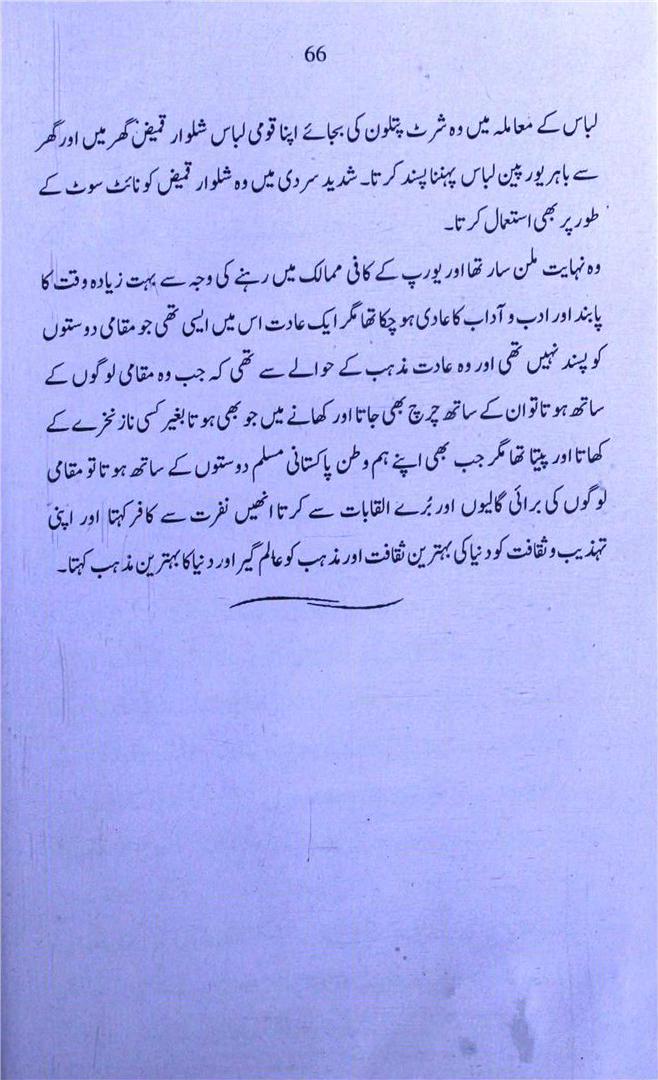 66
لباس کے معاملہ میں وہ شرٹ پتلون کی بجائے اپنا قومی لباس شلوار قمیض گھر میں اور گھر
سے باہر یورپین لباس پہننا پسند کرتا۔ شدید سردی میں وہ شلوار قمیض کو نائٹ سوٹ کے
طور پر بھی استعمال کرتا۔
وہ نہایت ملن سار تھا اور یورپ کے کافی ممالک میں رہنے کی وجہ سے بہت زیادہ وقت کا
پابند اور ادب و آداب کا عادی ہو چکا تھا مگر ایک عادت اس میں ایسی تھی جو مقامی دوستوں
کو پسند نہیں تھی اور وہ عادت مذہب کے حوالے سے تھی کہ جب وہ مقامی لوگوں کے
ساتھ ہوتا تو ان کے ساتھ چرچ بھی جاتا اور کھانے میں جو بھی ہوتا بغیر کسی ناز نخرے کے
کھاتا اور پیتا تھا مگر جب بھی اپنے ہم وطن پاکستانی مسلم دوستوں کے ساتھ ہوتا تو مقامی
لوگوں کی برائی گالیوں اور بُرے القابات سے کرتا انھیں نفرت سے کافر کہتا اور اپنی
تہذیب و ثقافت کو دنیا کی بہترین ثقافت اور مذہب کو عالم گیر اور دنیا کا بہترین مذہب کہتا۔